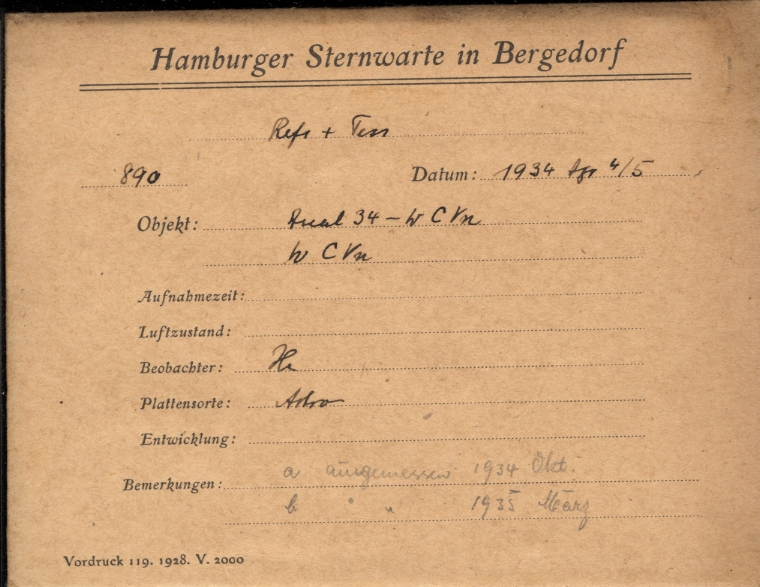 Hamburger Sternwarte in Bergedorf
Refr + Tess
890 Datum: 1934 Apr 4/5
Objekt: 34 – W C Vn
W C Vn
Aufnahmezeit:
Luftzustand:
Beobachter:
Plattensorte: Astro
Entwicklung:
Bemerkungen: a ausgemessen 1934 Okt.
b " " 1935 März
Vordruck 119. 1928. V. 2000